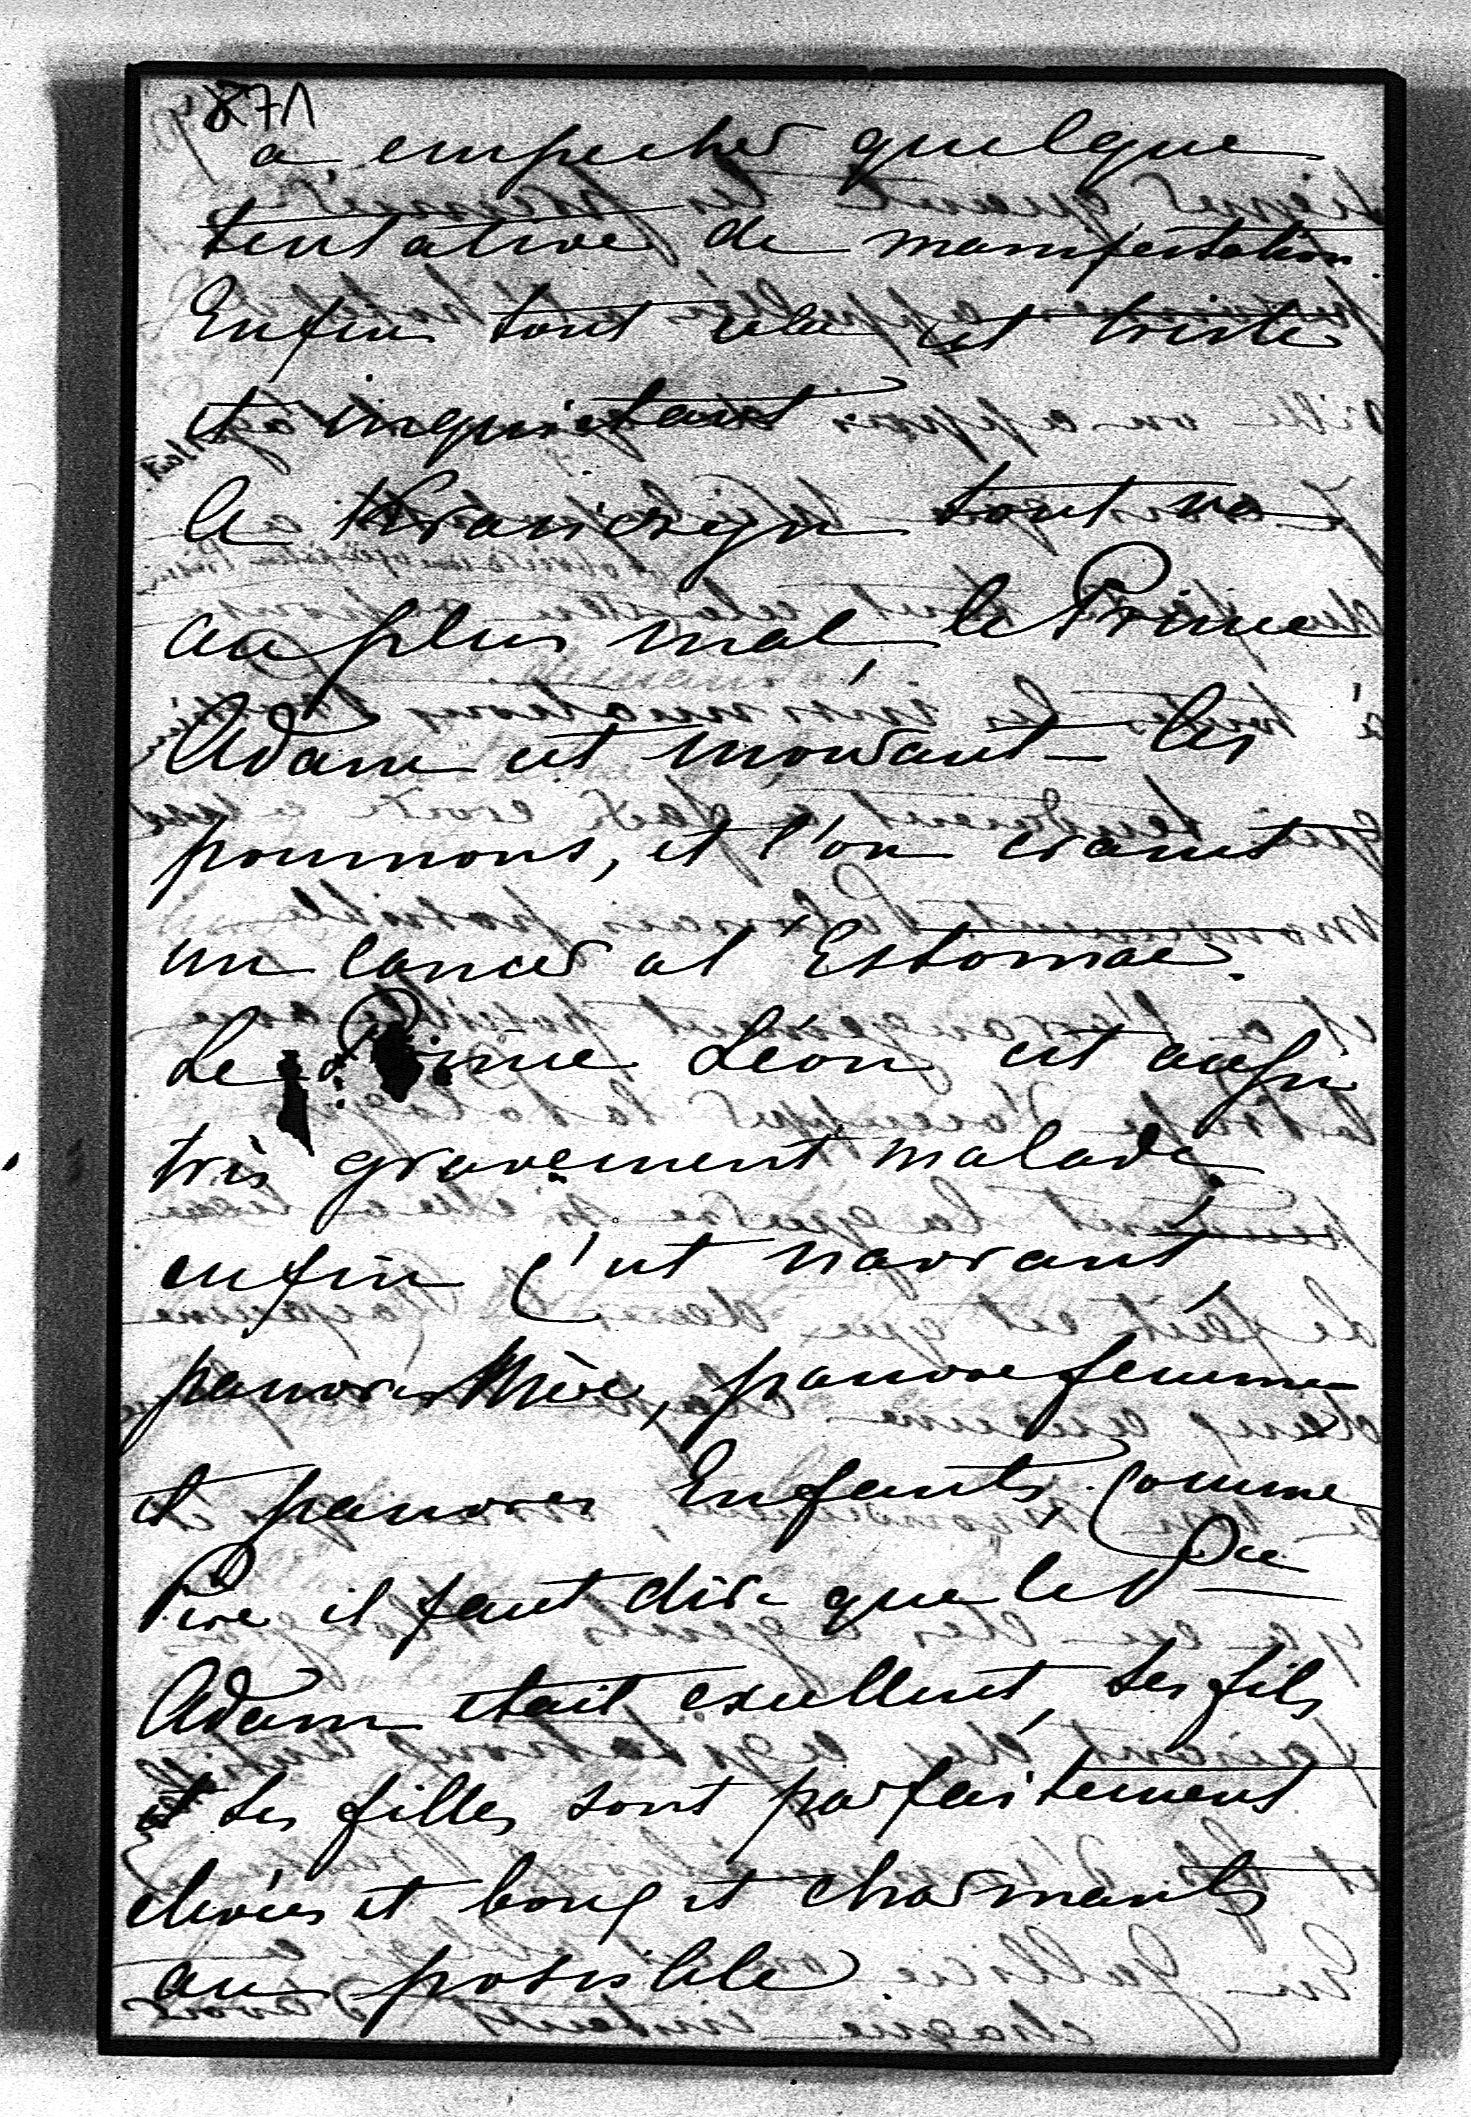 871
a empecher quelque
tentative de manifestation.
Enfin tout cela est triste
et inquietant
le Krasiczyn tout va
au plus mal, le Prince
Adam est mourant – les
poumons, et l'on craint
un cancer al Estomac.
Le Prince Léon est aussi
très gravement malade,
enfin c'est navrant,
pauvre Mère, pauvre femme
et pauvres Enfants. Comme
Père il faut dire que le Pce
Adam etait excellent, ses fils
et ses filles sont parfaitement
elevées et bons et charmants
au possible.